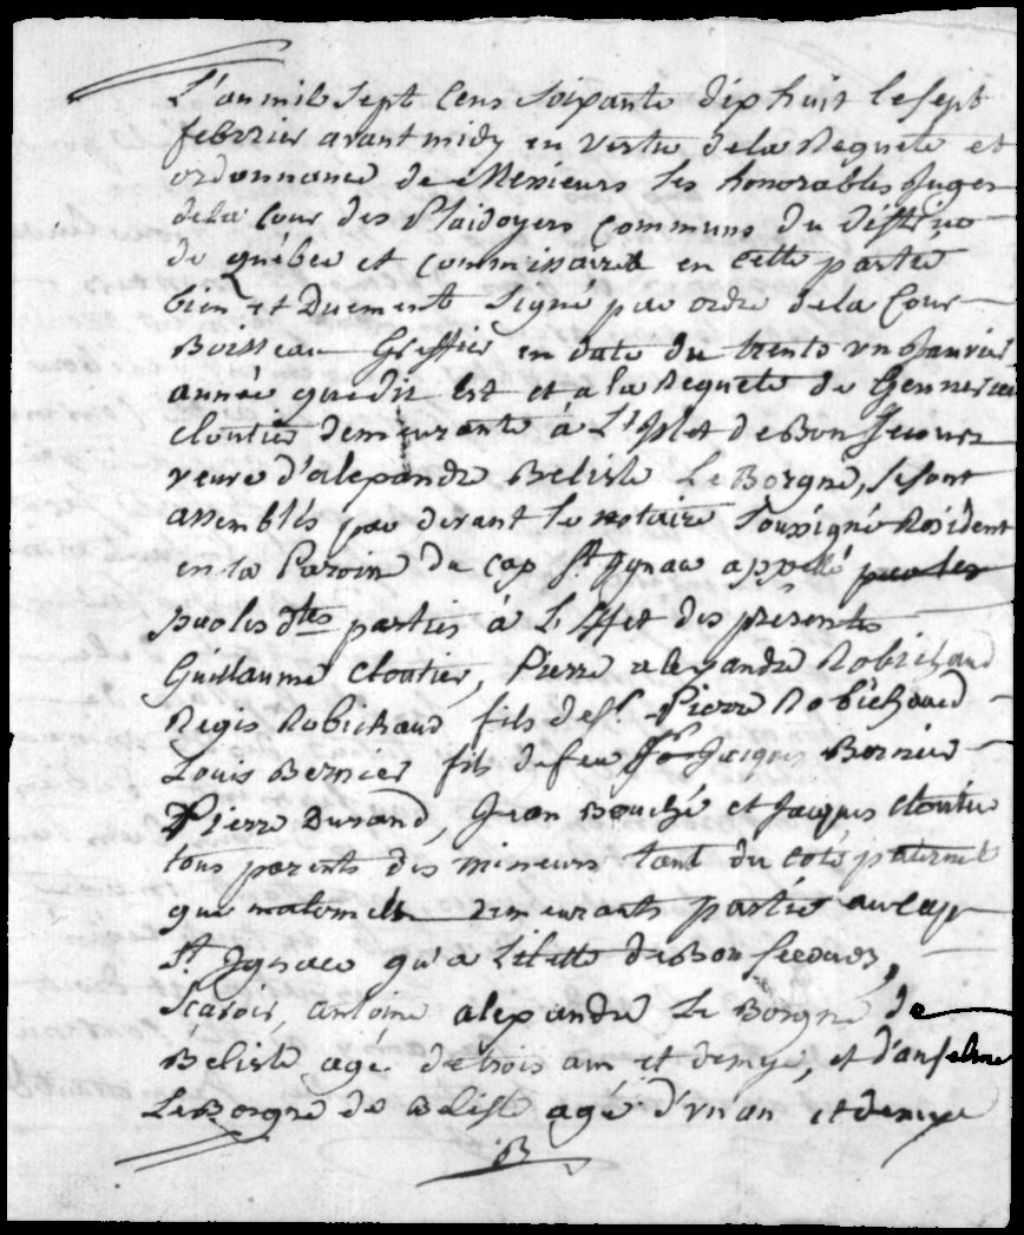 L'an mil sept cens soixante dix huit le sept
febvrier avant midy en vertu de la Requete et
ordonnance de Messieurs les honorables Juges
de la Cour des Plaidoyers Communs du district
de québec et commissaire en cette partie
bien et Duement Signé par ordre de la Cour
Boisseau Greffier en date du trente un Janvier
année que dit est et a la Requete de Genneviev
cloutier demeurante à L'Islet de Bon Secours
veuve d'alexandre Belisle Le Borgne, se sont
assemblés par devant le notaire soussigné Resident
en la Paroisse du cap St Ignace appellé par les
par les dtes parties à L'Effet des presentes
Guillaume Cloutier, Pierre alexandre Robichaud
Regis Robichaud fils de ft Pierre Robichaud
Louis Bernier fils de feu Jacques Bernier
Pierre Durand, Jean Bouché et Jacques cloutier
tous parents des mineurs tant du coté paternel
que maternelle demeurants partie au cap
St Ignace qu'a Lilette de Bon Secours,
Scavoir, antoine alexandre Le Borgne de
Belisle agé de trois ans et demye, et d'anselme
Le Borgne de Belisle agé d'un an et demye
B